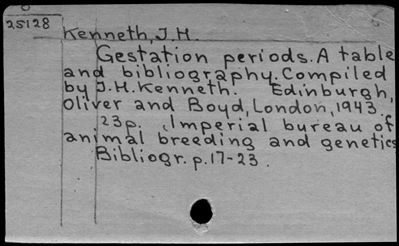 25128
Kenneth, J.H.
Gestation periods. A table
and bibliography. Compiled
by J.H. Kenneth. Edinburgh,
Oliver and Boyd, London, 1943.
23p. (Imperial bureau of
animal breeding and genetics
Bibliogr. p.17-23.